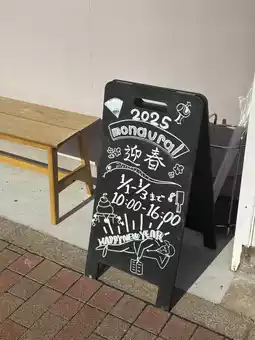 2025
monaural
迎春
1/1-1/3まで
10:00-16:00
HAPPY NEW YEAR